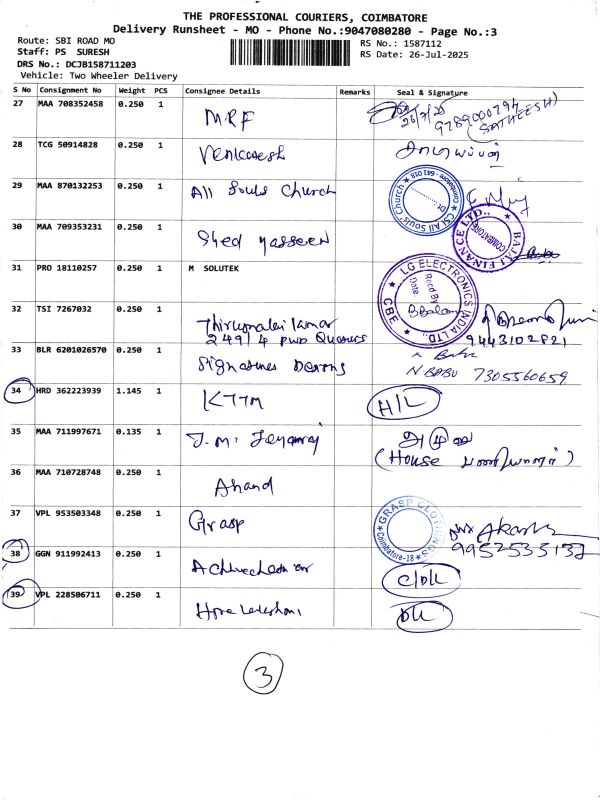 THE PROFESSIONAL COURIERS, COIMBATORE
Delivery Runsheet - MO - Phone No.:9047080280 - Page No.:3
Route: SBI ROAD MO
RS No.: 1587112
Staff: PS SURESH
RS Date: 26-Jul-2025
DRS No.: DCJB158711203
Vehicle: Two Wheeler Delivery
S No Consignment No Weight PCS Consignee Details Remarks Seal & Signature
27 MAA 708352458 0.250 1 MRF 26/7/25 9789000794 (SATHEESH)
28 TCG 50914828 0.250 1 Venkatesh
29 MAA 870132253 0.250 1 All Souls Church
CSI All Souls Church Coimbatore - 641 018
30 MAA 709353231 0.250 1 Syed Yasseen
BAJAJ FINANCE LTD., COIMBATORE
31 PRO 18110257 0.250 1 M SOLUTEK
LG ELECTRONICS INDIA LTD., CBE Recd By Date
32 TSI 7267032 0.250 1 Thirumalai Kumar
249/4 PWD Quarters 9443102821
33 BLR 6201026570 0.250 1 Signatures Decors N BABU 7305560659
34 HRD 362223939 1.145 1 KTTM H/L
35 MAA 711997671 0.135 1 J.M. Jeyaraj அமுலு
(House பணியாளர்)
36 MAA 710728748 0.250 1 Anand
37 VPL 953503348 0.250 1 Grasp
GRASP CLOTHINGS Coimbatore-18
Akash
9952535132
38 GGN 911992413 0.250 1 C/DL
39 VPL 228506711 0.250 1 DL
3